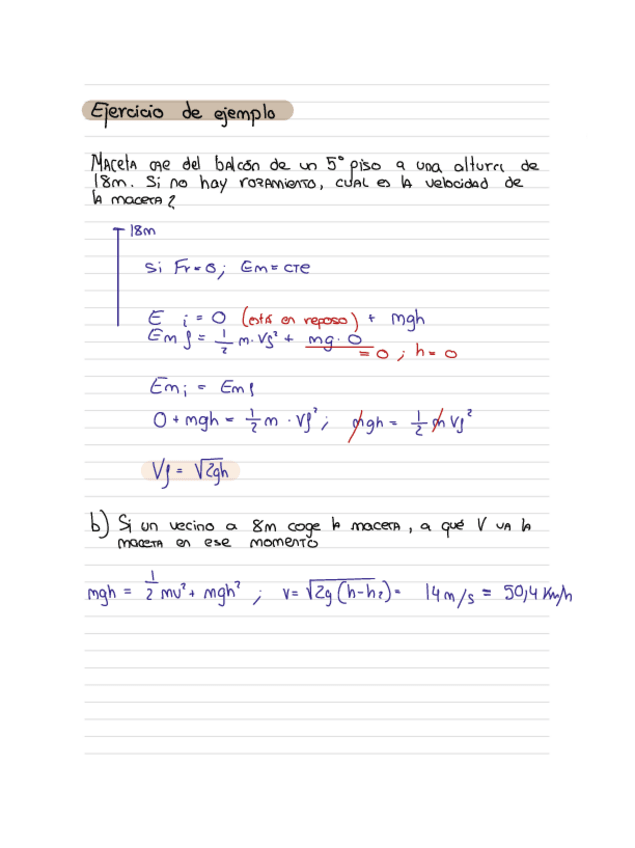 Ejercicio de ejemplo
Maceta cae del balcón de un 5º piso a una altura de
18m. Si no hay rozamiento, cual es la velocidad de
la maceta?
18m
Si Fr=0; Em=cte
E i = 0 (está en reposo) + mgh
Em f = 1/2 m·Vf² + mg·0
= 0 ; h=0
Em i = Em f
0 + mgh = 1/2 m · Vf² ; mgh = 1/2 m Vf²
Vf = √2gh
b) Si un vecino a 8m coge la maceta, a qué V va la
maceta en ese momento
mgh = 1/2 mv² + mgh² ; v = √2g(h-h₂) = 14m/s = 50,4 Km/h